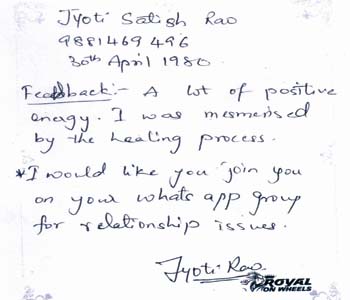 Jyoti Satish Rao
9881469496
30th April 1980
Feedback:- A lot of positive
energy. I was mesmerised
by the healing process.
*I would like you join you
on your whats app group
for relationship issues.
Jyoti Rao
ROYAL
ON WHEELS